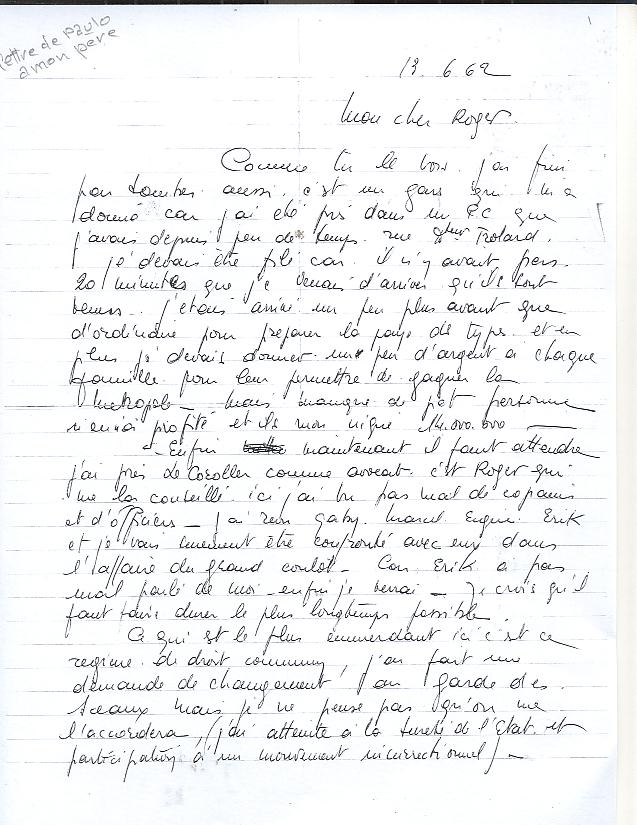 lettre de Paulo
a mon pere
1
13. 6. 62
Mon cher Roger.
Comme tu le vois. j'ai fini
par tomber aussi. c'est un gars qui m'a
donné car j'ai été pris dans un P.C que
j'avais depuis peu de temps. rue Trolard.
je devais être filé car. il n'y avait pas.
20 minutes que je venais d'arriver qu'ils sont
venus. j'étais arrivé un peu plus avant que
d'ordinaire pour préparer la paye de types. et en
plus je devais donner un peu d'argent a chaque
famille pour leur permettre de gagner la
Métropole _ Mais manque de pot personne
n'en a profité et ils m'ont niqué 14.000.000
- Enfin maintenant il faut attendre
j'ai pris de Coroller comme avocat. c'est Roger qui
me l'a conseillé ici j'ai vu pas mal de copains
et d'officiers _ j'ai revu Gaby. Marcel Eugène. Erik
et je vais surement être confronté avec eux dans
l'affaire du grand coulot _ Car Erik a pas
mal parlé de moi enfin je verrai _ Je crois qu'il
faut faire durer le plus longtemps possible.
Ce qui est le plus emmerdant ici c'est ce
regime de droit commun, j'ai fait une
demande de changement au garde des
sceaux mais je ne pense pas qu'on me
l'accordera, (j'ai atteinte à la sureté de l'Etat. et
participation à un mouvement insurrectionnel) _